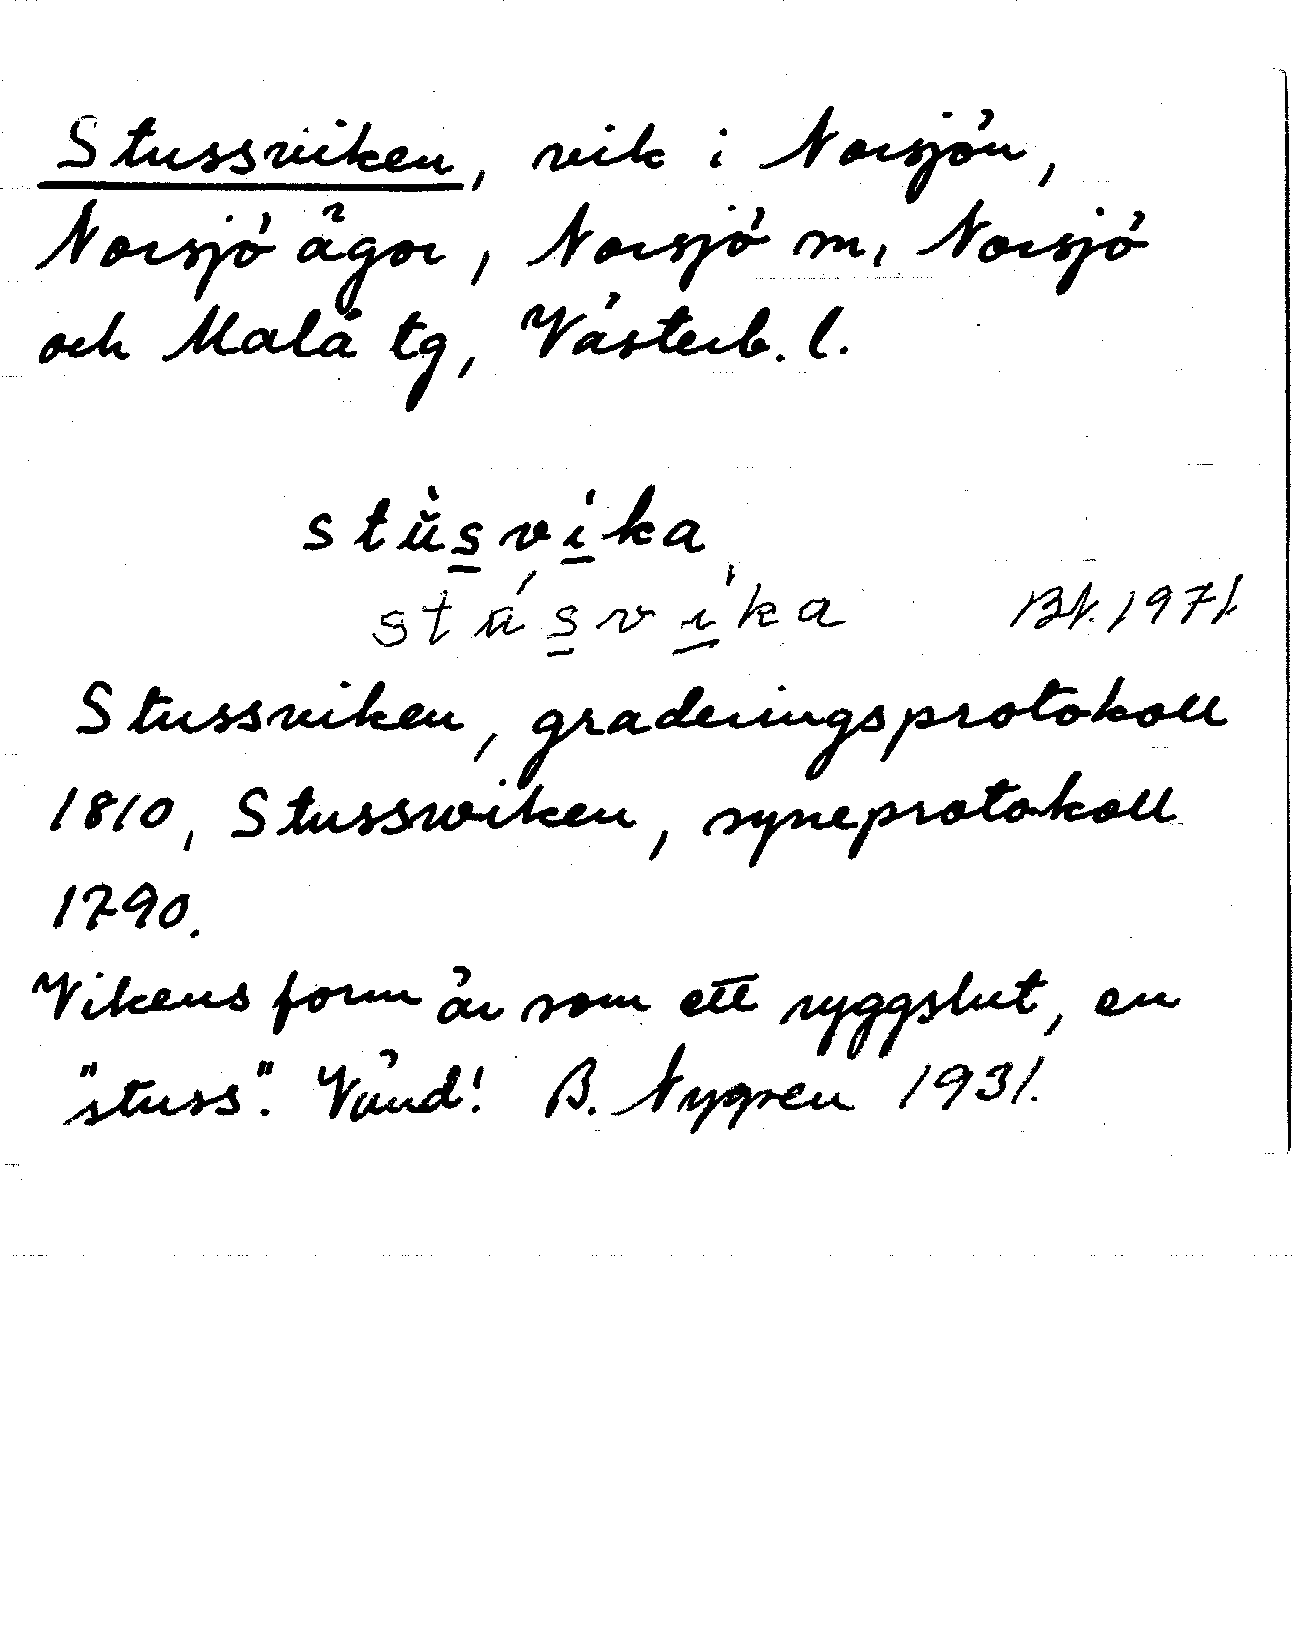 Stussviken, vik i Norsjön,
Norsjö ägor, Norsjö m, Norsjö
och Malå tg, Västerb. l.
stùsvika
stásvika BN. 1971
Stussviken, graderingsprotokoll
1810, Stusswiken, syneprotokoll
1790.
Vikens form är som ett ryggslut, en
"stuss". Vänd! B. Nygren 1931.